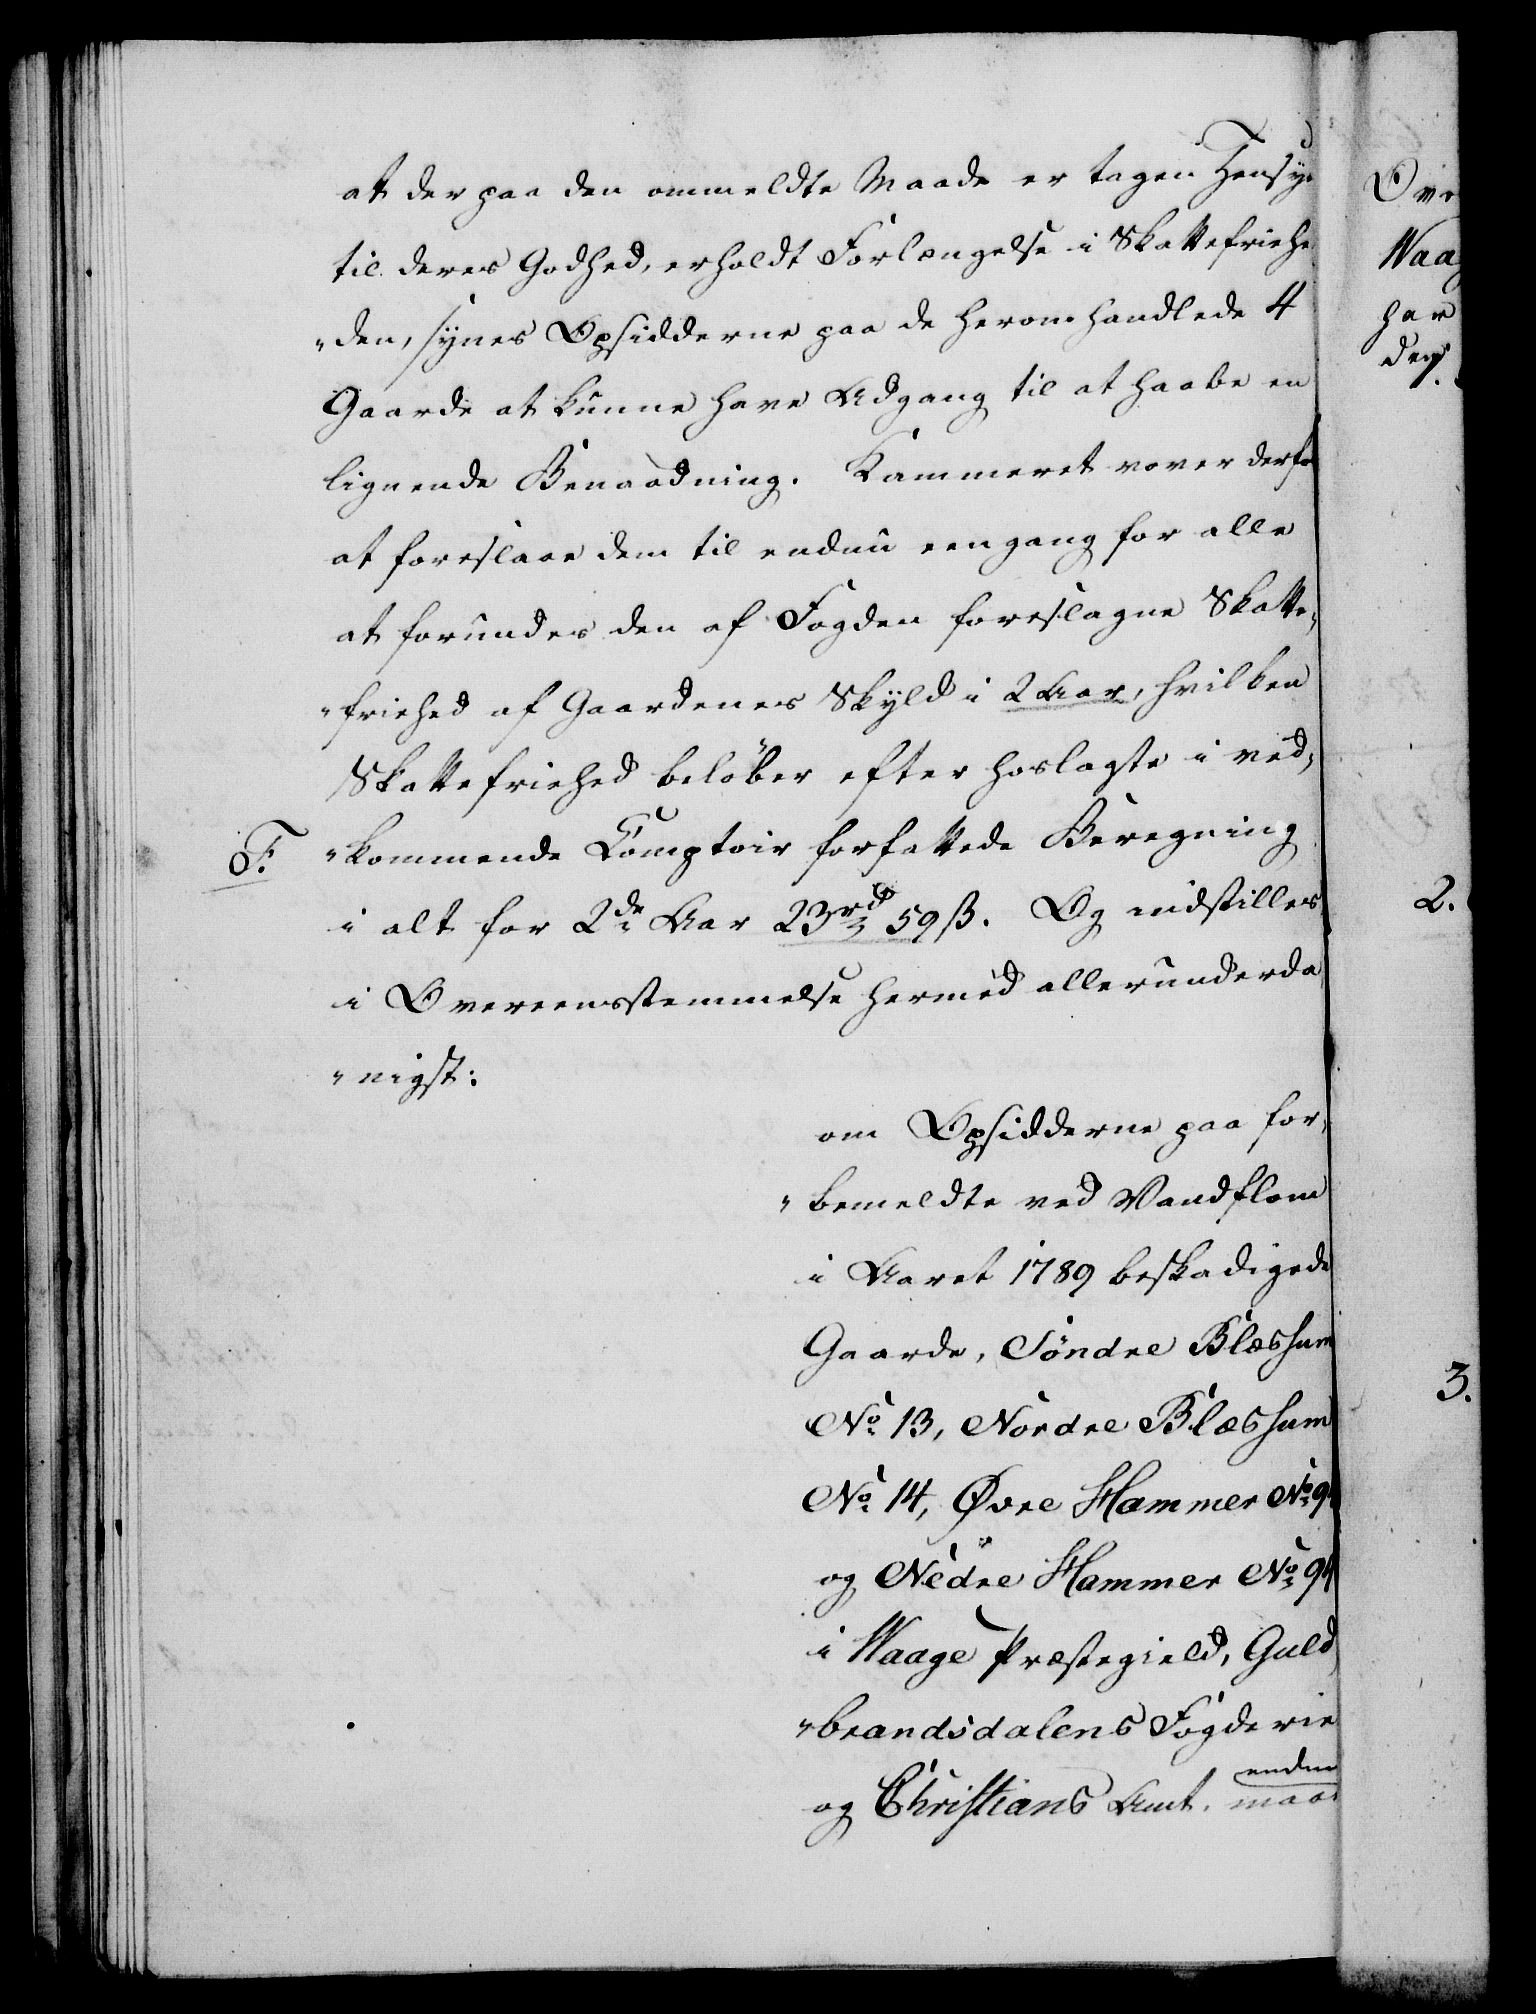 at der paa den ommeldte Maade er tagen Hensy
til deres Godhed, erholdt Forlængelse i Skattefriehe
"den, synes Opsidderne paa de heromhandlede 4
Gaarde at kunne have Adgang til at haabe en
lignende Benaadning. Kammeret vover derfo
at foreslaae dem til endnu eengang for alle
at forundes den af Fogden foreslagne Skatte,
"friehed af Gaardenes Skyld i 2 Aar, hvilken
Skattefriehed beløber efter hoslagte i ved,
F. "kommende Comptoir forfattede Beregning
i alt for 2de Aar 23rd 59ß. Og indstilles
i Overeensstemmelse hermed allerunderda
"nigst:
om Opsidderne paa for,
"bemeldte ved Vandflom
i Aaret 1789 beskadigede
Gaarde, Söndre Blæshum
No. 13, Nordre Blæshum
No. 14, Øvre Hammer No. 9
og Nedre Hammer No. 94
i Waage Præstegield, Guld
"brandsdalens Fogderie
og Christians Amt. maae
endnu
Ovr
Waa
har
den
2.
3.